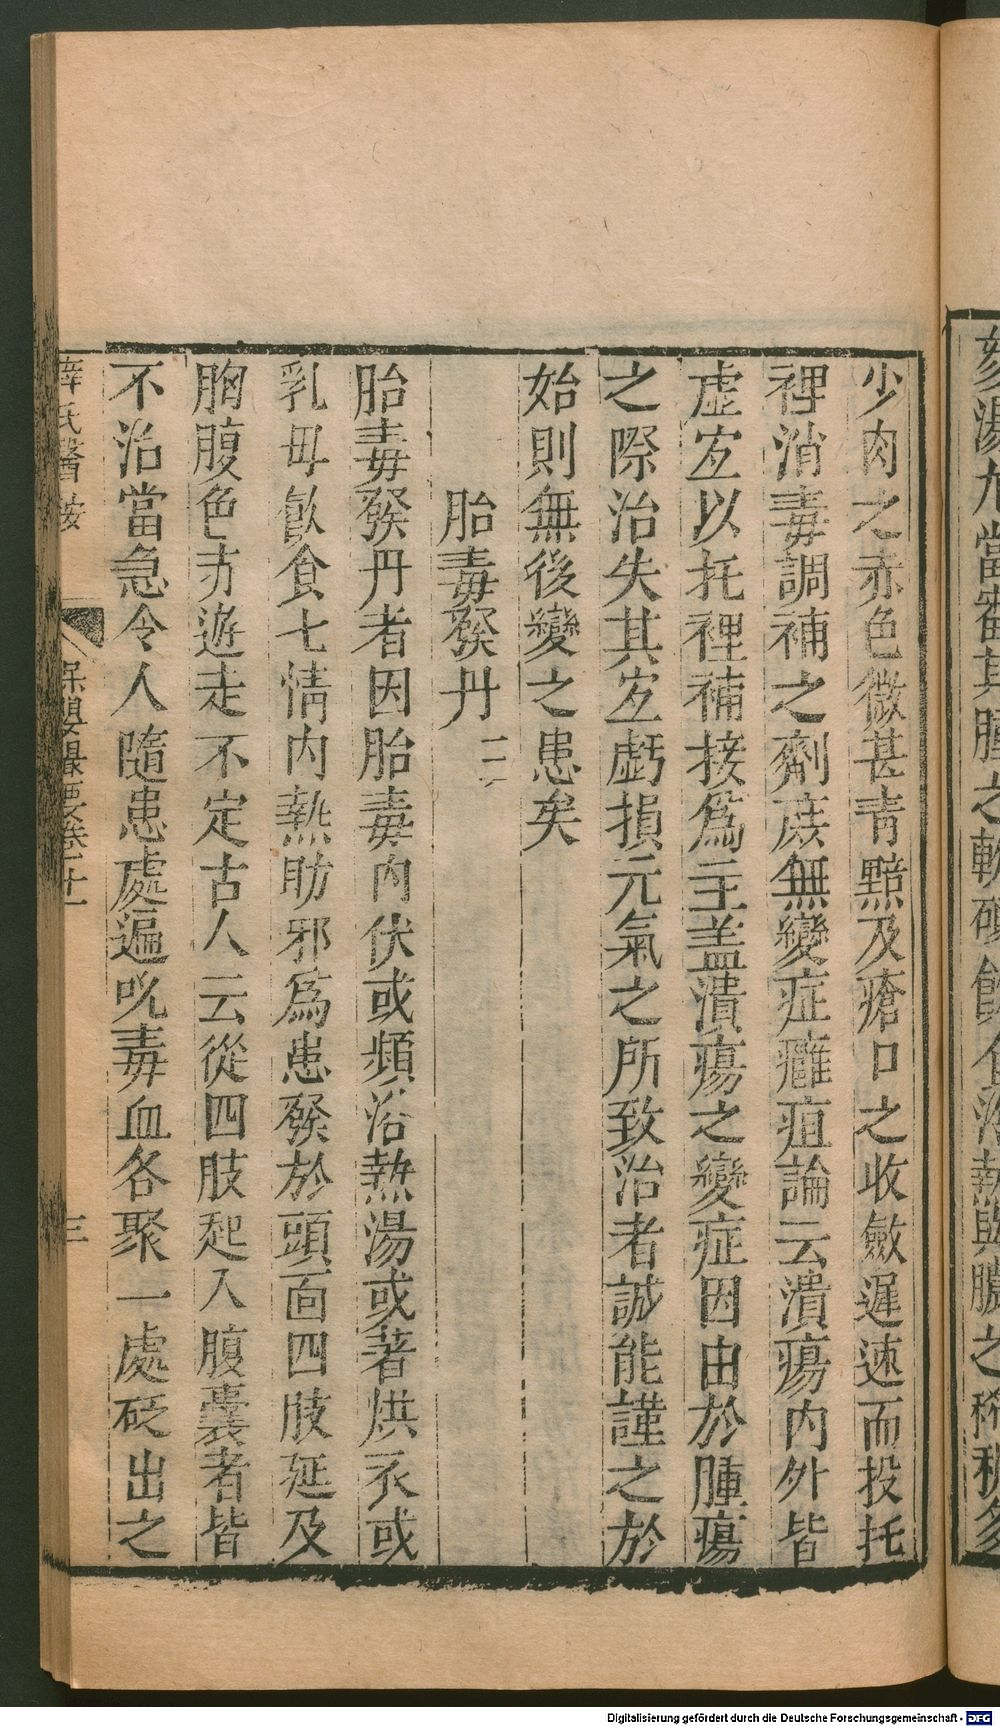 少肉之赤色微甚青黯及瘡口之收斂遲速而投托
裡消毒調補之劑庻無變症癰疽論云潰瘍內外皆
虛宐以托裡補接爲主盖潰瘍之變症因由於腫瘍
之際治失其宐虧損元氣之所致治者誠能謹之於
始則無後變之患矣
胎毒發丹二
胎毒發丹者因胎毒內伏或頻浴熱湯或著烘衣或
乳母飲食七情内熱助邪爲患發於頭面四肢延及
胸腹色赤遊走不定古人云從四肢起入腹囊者皆
不治當急令人隨患處遍吮毒血各聚一處砭出之
薛氏醫按
保嬰撮要卷十一
三
Digitalisierung gefördert durch die Deutsche Forschungsgemeinschaft - DFG